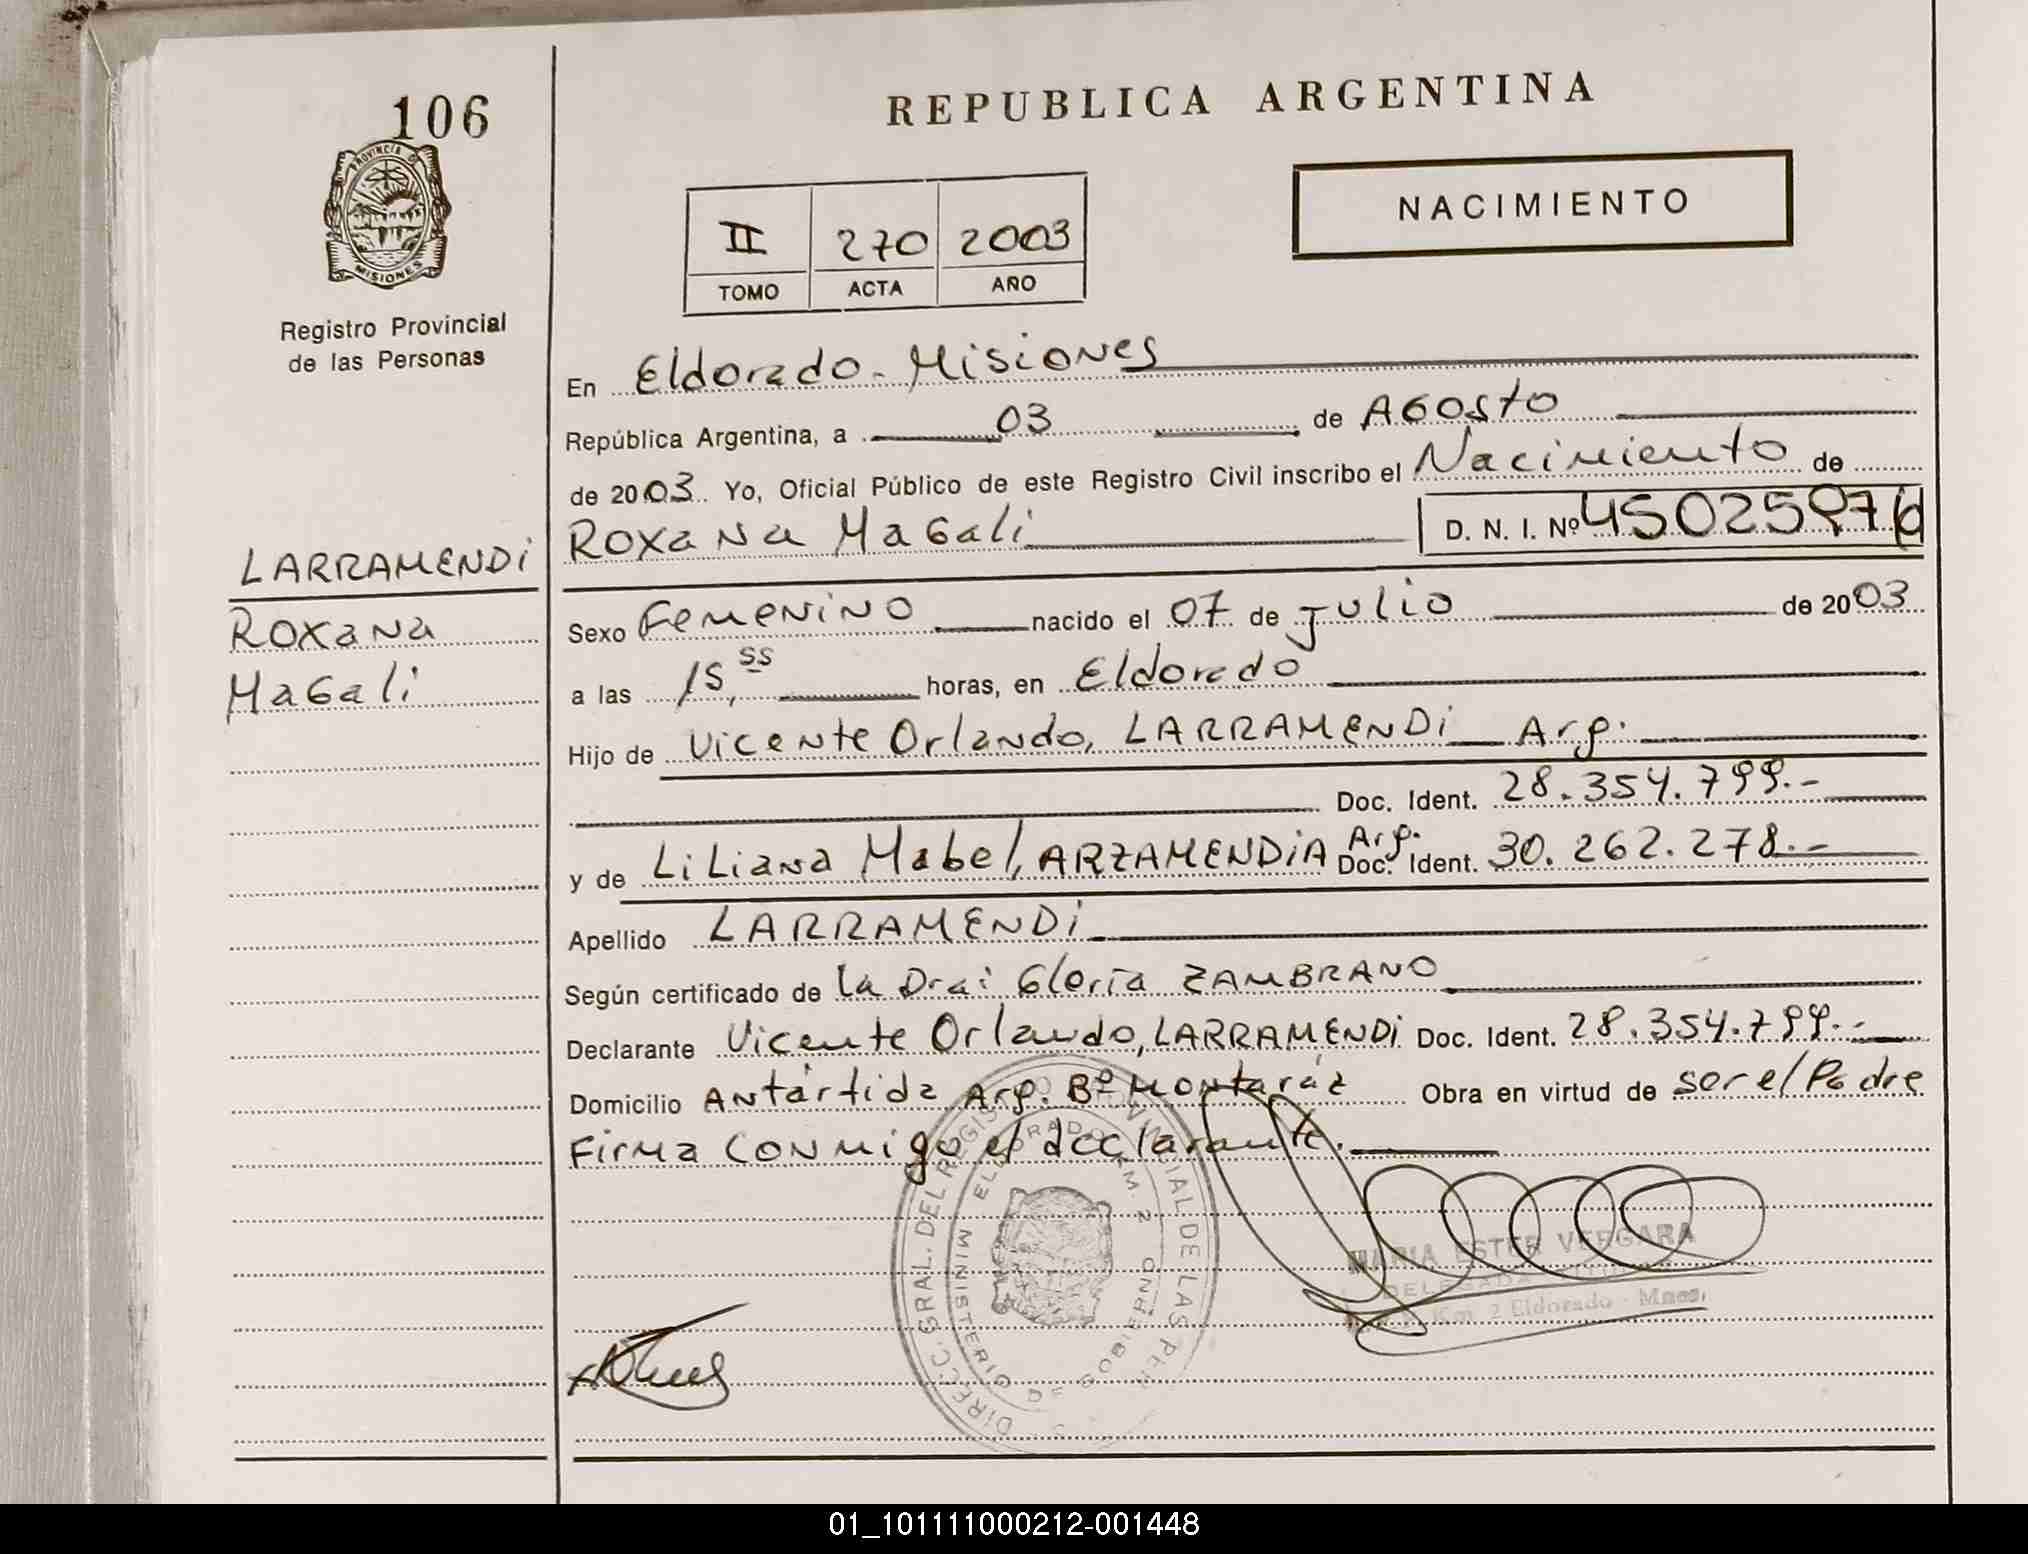 106
REPUBLICA ARGENTINA
NACIMIENTO
PROVINCIA D
MISIONES
II 270 2003
TOMO ACTA AÑO
Registro Provincial
de las Personas
En Eldorado - Misiones
República Argentina, a 03 de Agosto
de 2003 Yo, Oficial Público de este Registro Civil inscribo el Nacimiento de
Roxana Magali D. N. I. Nº
LARRAMENDI
Roxana
Magali
Sexo Femenino nacido el 07 de Julio de 2003
a las 15,55 horas, en Eldorado
Hijo de Vicente Orlando, LARRAMENDI Arg.
Doc. Ident. 28.354.799.-
y de Liliana Mabel, ARZAMENDIA Arg. Doc. Ident. 30.262.278.-
Apellido LARRAMENDI
Según certificado de la Dra: Gloria ZAMBRANO
Declarante Vicente Orlando, LARRAMENDI Doc. Ident. 28.354.799.-
Domicilio Antártida Arg. Bº Montaráz Obra en virtud de ser el Padre
Firma conmigo el declarante.
DIRECC. GRAL. DEL REGISTRO PROVINCIAL DE LAS PER
ELDORADO KM. 2
MINISTERIO DE GOBIERNO
MARIA ESTER VERGARA
DELEGADA
Km 2 Eldorado - Mnes.
01_101111000212-001448